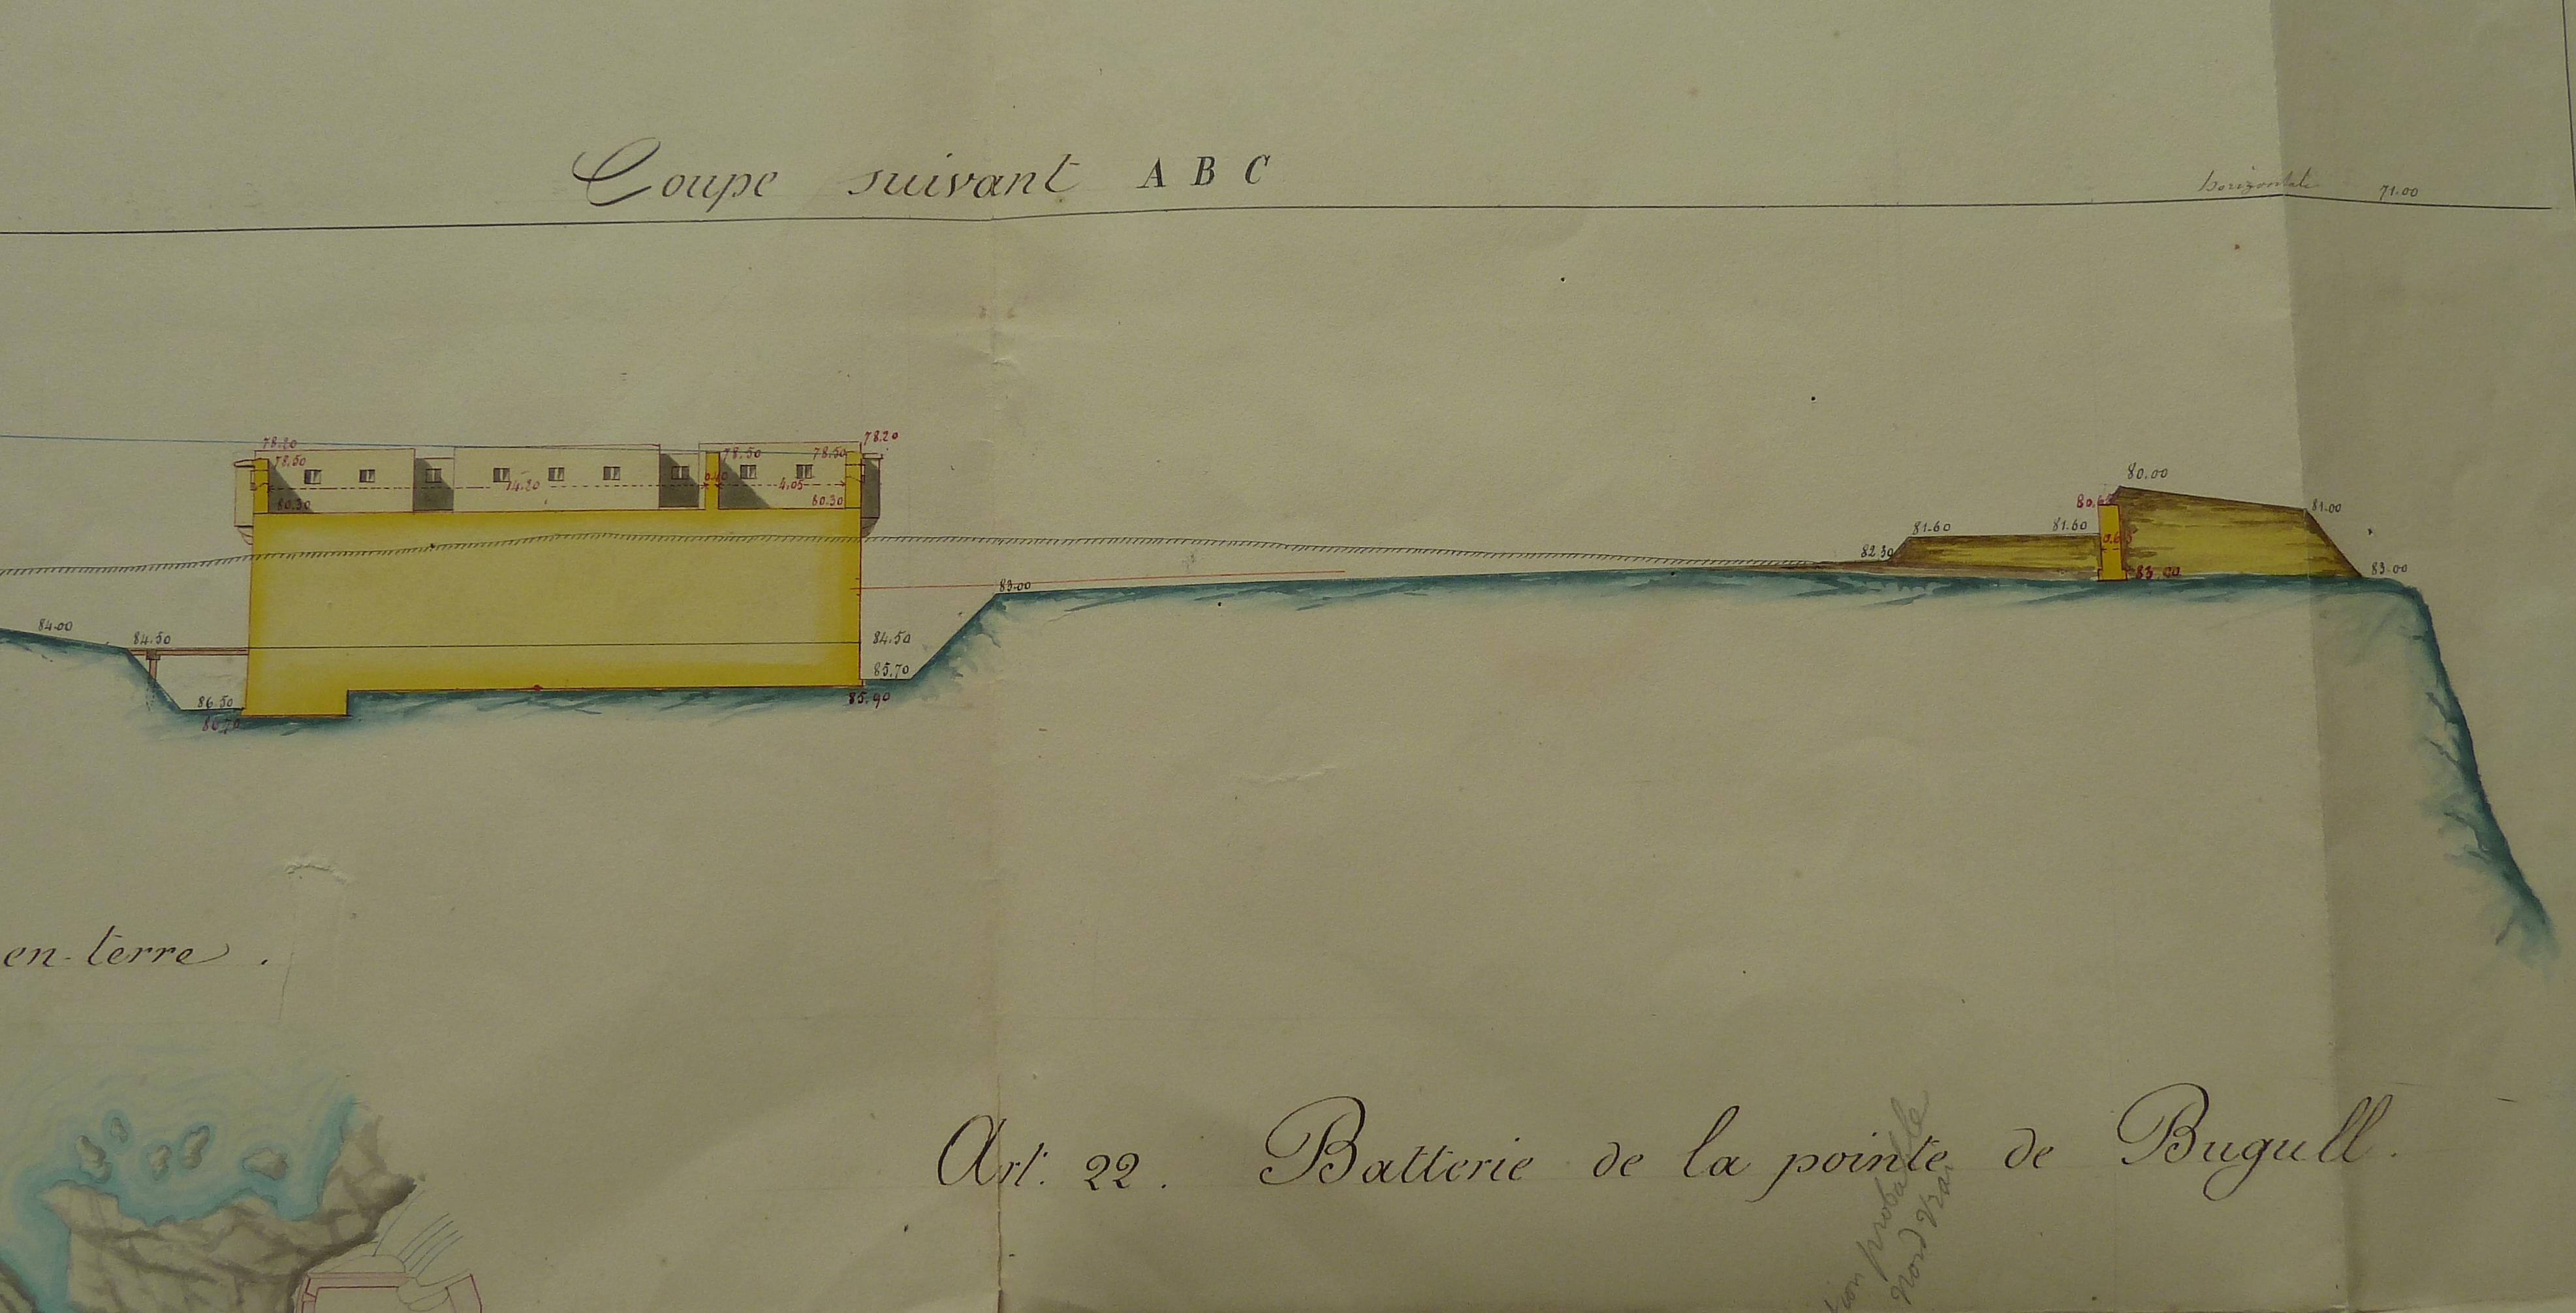 Coupe suivant A B C
horizontale 71.00
78.20 78.20
78.50 78.50 78.50
4.05
80.30 80.30
80.00
81.00
81.60 81.60
82.50
83.00 83.00 83.00
84.00 84.50 84.50
85.70
85.90
86.50
86.70
en terre .
Art. 22 . Batterie de la pointe de Bugull .
probable
Nord vrai